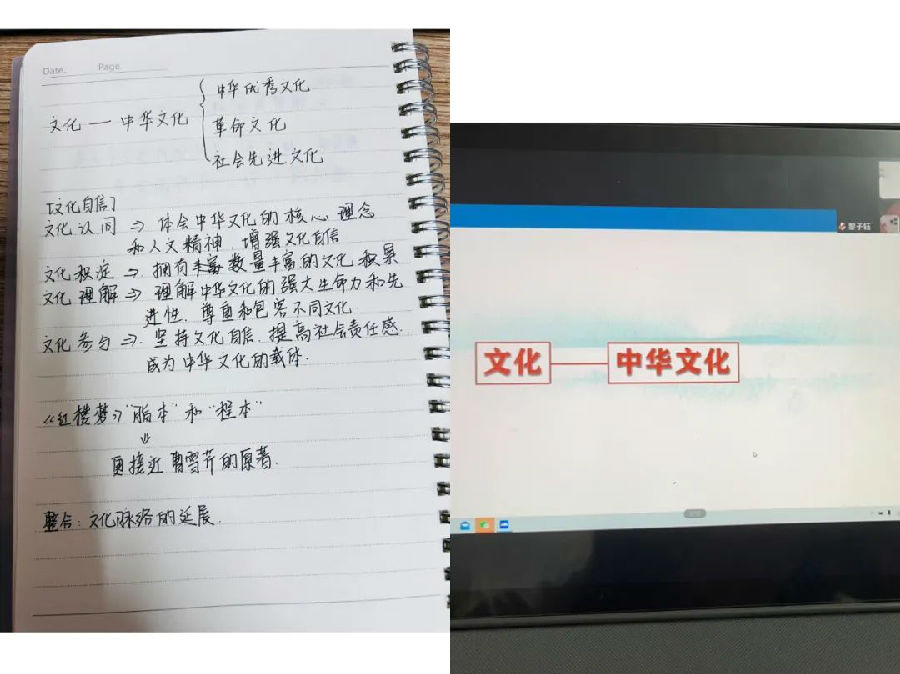 Date.
Page.
中华优秀文化
文化 — 中华文化
革命文化
社会先进文化
[文化自信]
文化认同 ⇒ 体会中华文化的核心理念
和人文精神，增强文化自信
文化积淀 ⇒ 拥有丰富数量丰富的文化积累
文化理解 ⇒ 理解中华文化的强大生命力和先
进性，尊重和包容不同文化
文化参与 ⇒ 坚持文化自信，提高社会责任感.
成为中华文化的载体.
《红楼梦》"脂本"和"程本"
⇓
更接近曹雪芹的原著.
整合：文化脉络的延展.
文化
中华文化